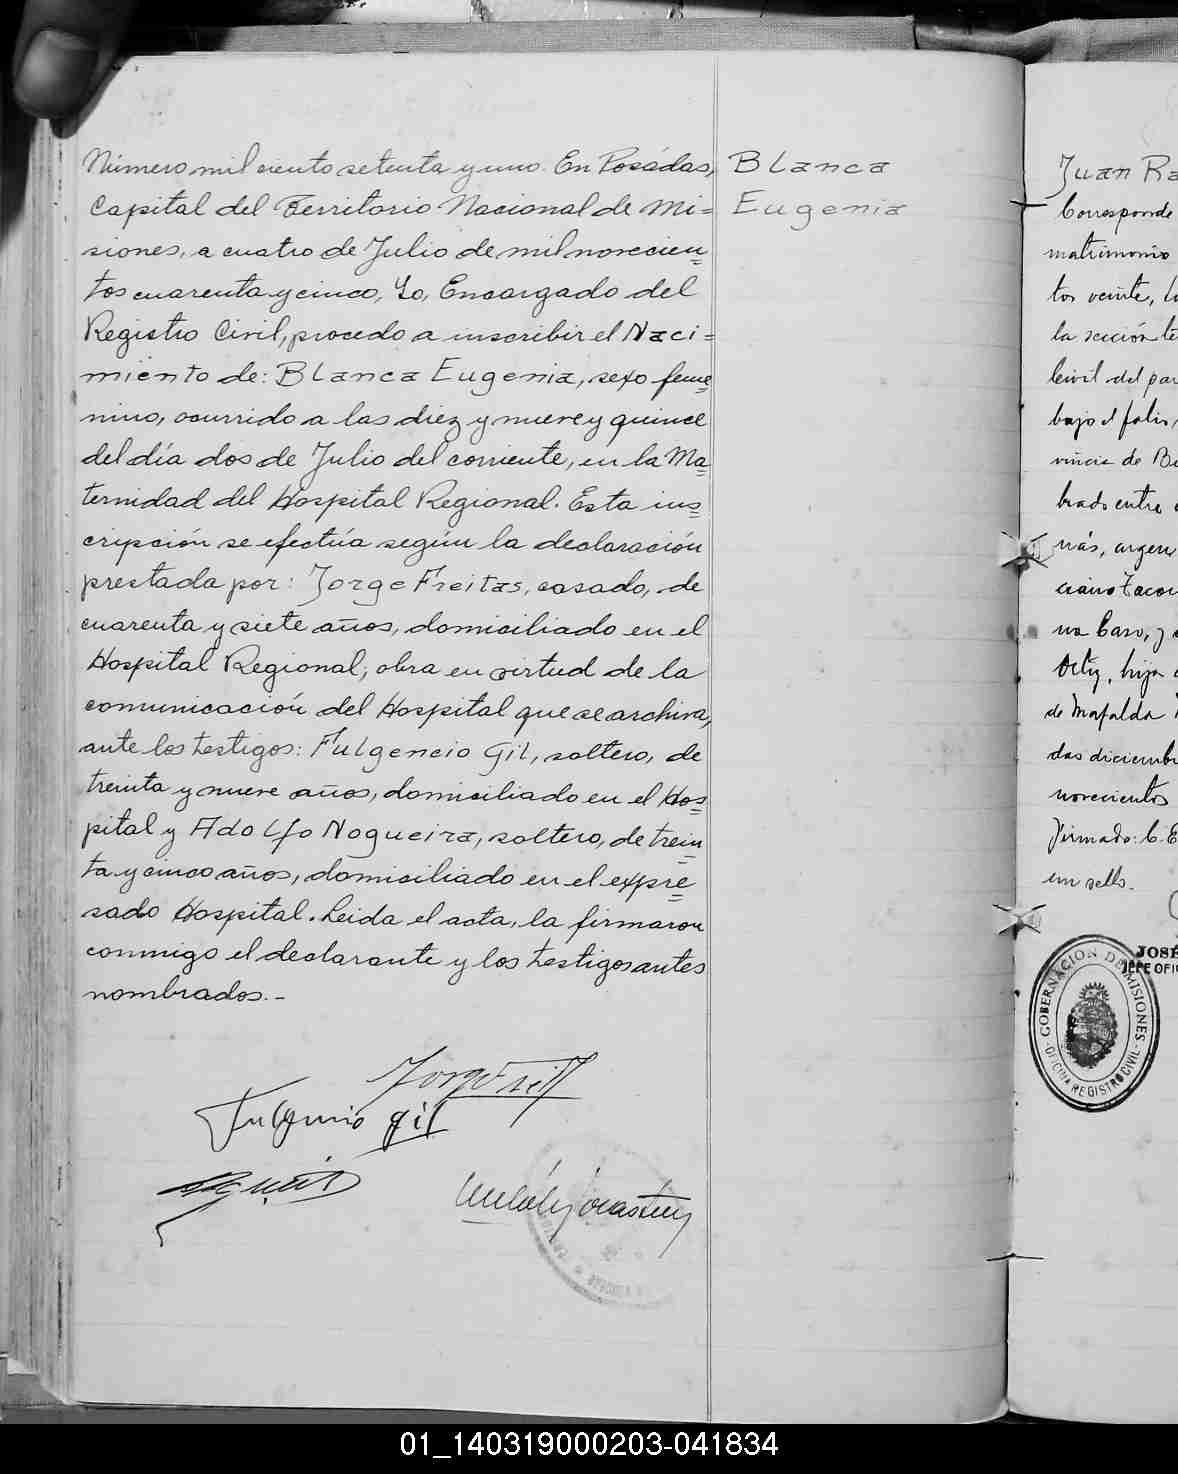 Número mil ciento setenta y uno. En Posádas,
Capital del Territorio Nacional de Mi=
siones, a cuatro de Julio de mil novecien=
tos cuarenta y cinco, Yo, Encargado del
Registro Civil, procedo a inscribir el Naci=
miento de: Blanca Eugenia, sexo feme=
nino, ocurrido a las diez y nueve y quince
del día dos de Julio del corriente, en la Ma=
ternidad del Hospital Regional. Esta ins=
cripción se efectúa según la declaración
prestada por: Jorge Freitas, casado, de
cuarenta y siete años, domiciliado en el
Hospital Regional; obra en virtud de la
comunicación del Hospital que se archiva,
ante los testigos: Fulgencio Gil, soltero, de
treinta y nueve años, domiciliado en el Hos=
pital y Adolfo Nogueira, soltero, de trein=
ta y cinco años, domiciliado en el expre=
sado Hospital. Leida el acta, la firmaron
conmigo el declarante y los testigos antes
nombrados.-
Fulgencio Gil
Blanca
Eugenia
Juan Ra
Corresponde
matrimonio
tos veinte,
la sección te
Civil del par
bajo el folio,
vincia de Bu
brado entre
nás, argen
ciano
na Caro, y
hija
de Mafalda
das diciembr
novecientos
Firmado: C. E
un sello.
JOSÉ
JEFE OFIC
GOBERNACION DE MISIONES
OFICINA REGISTRO CIVIL
01_140319000203-041834